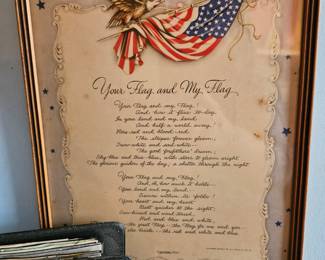 Your Flag and My Flag
Your Flag and my Flag!
And how it flies to-day
In your land and my land
And half a world away!
Rose-red and blood-red
The stripes forever gleam;
Snow-white and soul-white—
The good forefathers' dream;
Sky-blue and true-blue, with stars to gleam aright
The gloried guidon of the day; a shelter through the night.
Your Flag and my Flag!
And, oh, how much it holds—
Your land and my land—
Secure within its folds!
Your heart and my heart
Beat quicker at the sight;
Sun-kissed and wind-tossed,
Red and blue and white.
the great Flag—the Flag for me and you
the red and white and blue